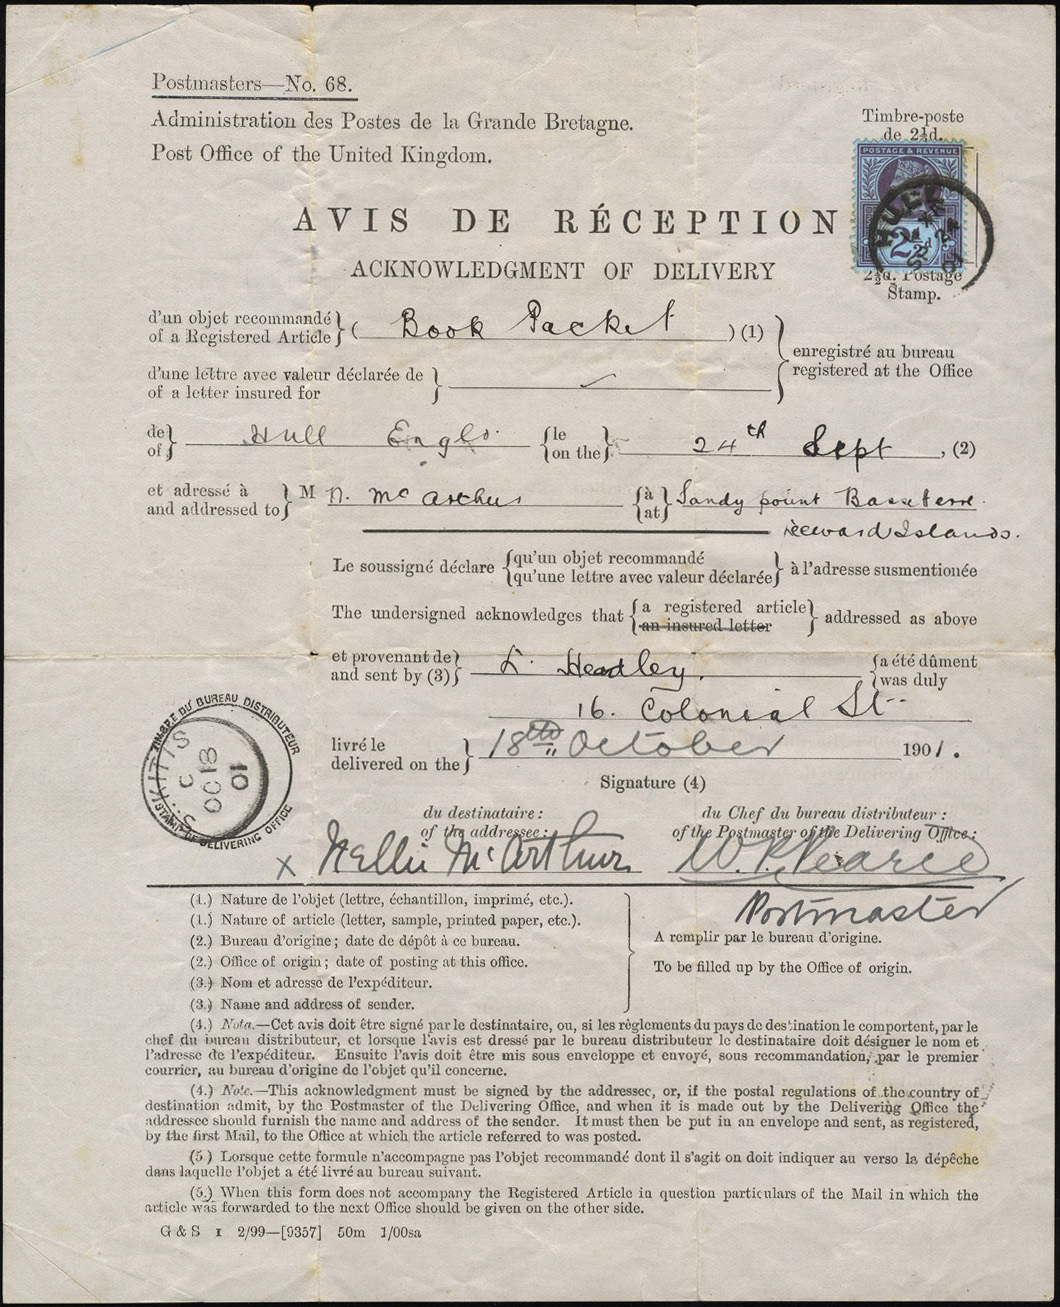 Postmasters—No. 68.
Administration des Postes de la Grande Bretagne.
Post Office of the United Kingdom.
Timbre-poste
de 2½d.
POSTAGE & REVENUE
2½d
HULL
24
01
2½d. Postage
Stamp.
AVIS DE RÉCEPTION
ACKNOWLEDGMENT OF DELIVERY
d'un objet recommandé
of a Registered Article } ( Book Packet ) (1)
enregistré au bureau
registered at the Office
d'une lettre avec valeur déclarée de
of a letter insured for
de
of } Hull Engld. { le
on the } 24th Sept , (2)
et adressé à
and addressed to } M N. McArthur { à
at } Sandy point Basseterre.
Leeward Islands.
Le soussigné déclare { qu'un objet recommandé
qu'une lettre avec valeur déclarée } à l'adresse susmentionée
The undersigned acknowledges that { a registered article
an insured letter } addressed as above
et provenant de
and sent by (3) } L. Headley. { a été dûment
was duly
16. Colonial St.
livré le
delivered on the } 18th October 1901.
Signature (4)
TIMBRE DU BUREAU DISTRIBUTEUR
ST. KITTS
C
OC 18
01
STAMP OF DELIVERING OFFICE
du destinataire :
of the addressee :
du Chef du bureau distributeur :
of the Postmaster of the Delivering Office :
x Nellie McArthur
W. P. Pearce
Postmaster
(1.) Nature de l'objet (lettre, échantillon, imprimé, etc.).
(1.) Nature of article (letter, sample, printed paper, etc.).
(2.) Bureau d'origine ; date de dépôt à ce bureau.
(2.) Office of origin ; date of posting at this office.
(3.) Nom et adresse de l'expéditeur.
(3.) Name and address of sender.
A remplir par le bureau d'origine.
To be filled up by the Office of origin.
(4.) Nota.—Cet avis doit être signé par le destinataire, ou, si les règlements du pays de destination le comportent, par le
chef du bureau distributeur, et lorsque l'avis est dressé par le bureau distributeur le destinataire doit désigner le nom et
l'adresse de l'expéditeur. Ensuite l'avis doit être mis sous enveloppe et envoyé, sous recommandation, par le premier
courrier, au bureau d'origine de l'objet qu'il concerne.
(4.) Note.—This acknowledgment must be signed by the addressee, or, if the postal regulations of the country of
destination admit, by the Postmaster of the Delivering Office, and when it is made out by the Delivering Office the
addressee should furnish the name and address of the sender. It must then be put in an envelope and sent, as registered,
by the first Mail, to the Office at which the article referred to was posted.
(5) Lorsque cette formule n'accompagne pas l'objet recommandé dont il s'agit on doit indiquer au verso la dépêche
dans laquelle l'objet a été livré au bureau suivant.
(5.) When this form does not accompany the Registered Article in question particulars of the Mail in which the
article was forwarded to the next Office should be given on the other side.
G & S 1 2/99—[9357] 50m 1/00sa